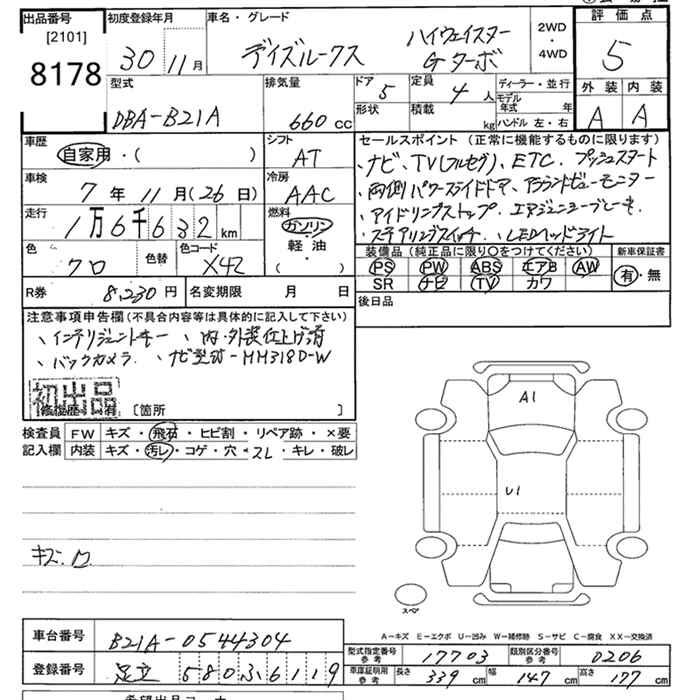 出品番号 [2101] 8178
初度登録年月 30年 11月
車名・グレード デイズルークス ハイウェイスター Gターボ
2WD・4WD
評価点 5
外装 A 内装 A
型式 DBA-B21A
排気量 660 cc
ドア 5 形状
定員 4人 積載 kg
ディーラー・並行
モデル年式 年
ハンドル 左・右
車歴 自家用・( )
シフト AT
車検 7年 11月(26日)
冷房 AAC
走行 1万6千632km
燃料 ガソリン・軽油 ( )
色 クロ 色替 色コード X42
R券 8,230円 名変期限 月 日
セールスポイント (正常に機能するものに限ります)
、ナビ、TV(フルセグ)、ETC、プッシュスタート
、両側パワースライドドア、アラウンドビューモニター
、アイドリングストップ、エマージェンシーブレーキ
、ステアリングスイッチ、LEDヘッドライト
装備品 (純正品に限り○をつけてください)
PS PW ABS エアB AW
SR ナビ TV カワ
新車保証書 有・無
後日品
注意事項申告欄 (不具合内容等は具体的に記入して下さい)
、インテリジェントキー 、内・外装仕上げ済
、バックカメラ 、ナビ型式-MM318D-W
初出品
修復歴 有 [箇所 ]
検査員記入欄
FW キズ・飛石・ヒビ割・リペア跡・×要
内装 キズ・汚レ・コゲ・穴・スレ・キレ・破レ
キズ.
A1
U1
スペア
A=キズ E=エクボ U=凹み W=補修跡 S=サビ C=腐食 XX=交換済
車台番号 B21A-0544304
登録番号 足立 580 ふ 6119
型式指定番号 参考 17703
類別区分番号 参考 0206
車庫証明用 参考 長さ 339cm 幅 147cm 高さ 177cm